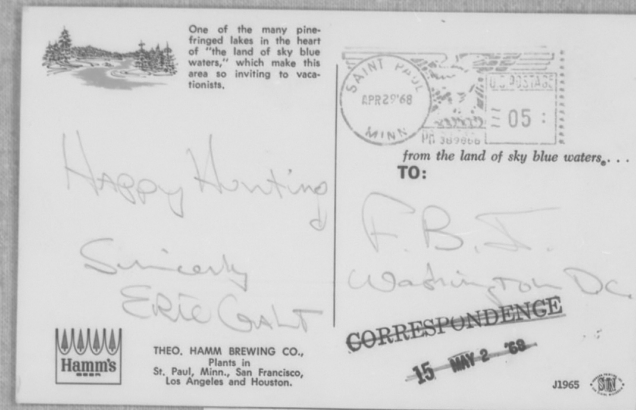 One of the many pine-
fringed lakes in the heart
of "the land of sky blue
waters," which make this
area so inviting to vaca-
tionists.
SAINT PAUL
APR 29 '68
MINN
U.S. POSTAGE
05
PB
from the land of sky blue waters. . . .
TO:
Happy Hunting
Sincerly
ERIC GALT
F.B.I.
Washington DC.
CORRESPONDENCE
15 MAY 2 '68
Hamm's
BEER
THEO. HAMM BREWING CO.,
Plants in
St. Paul, Minn., San Francisco,
Los Angeles and Houston.
J1965